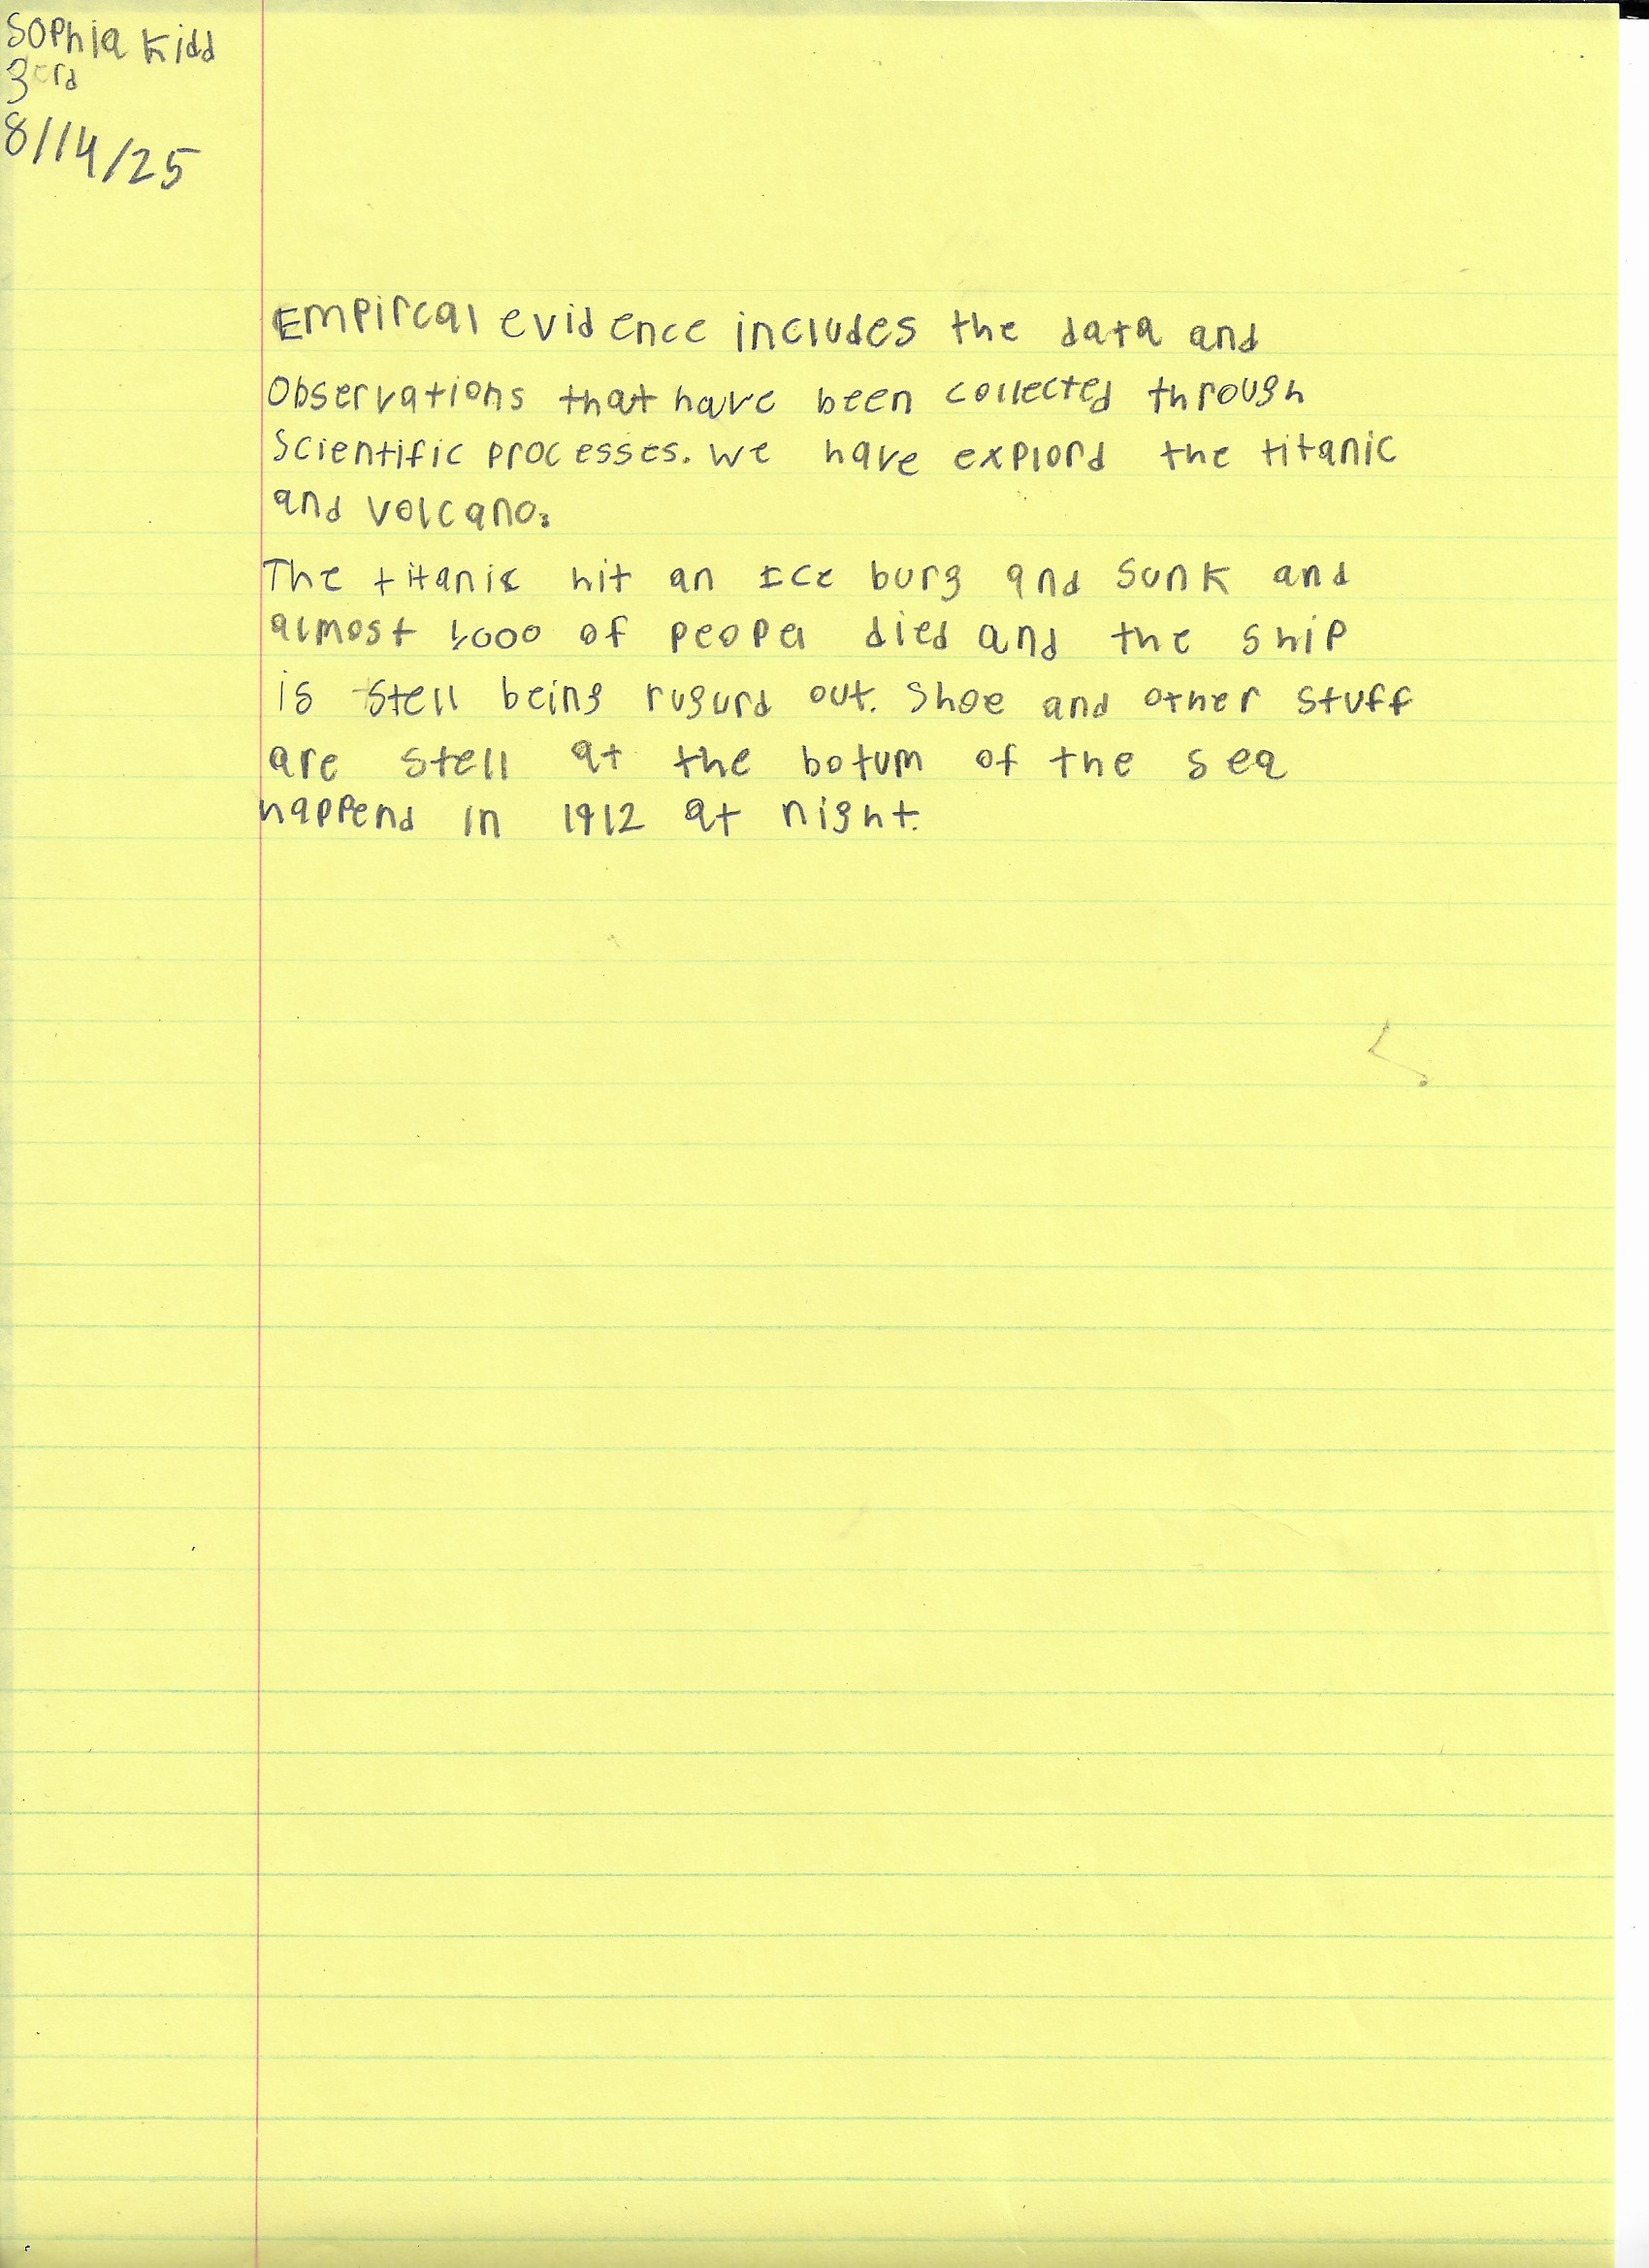 Sophia Kidd
3rd
8/14/25
Empircal evidence includes the data and
Observations that have been collected through
Scientific processes. We have explord the titanic
and volcano.
The titanic hit an Ice burg and sunk and
almost 1,000 of peopel died and the ship
is stell being rugurd out. Shoe and other stuff
are stell at the botum of the sea
happend in 1912 at night.